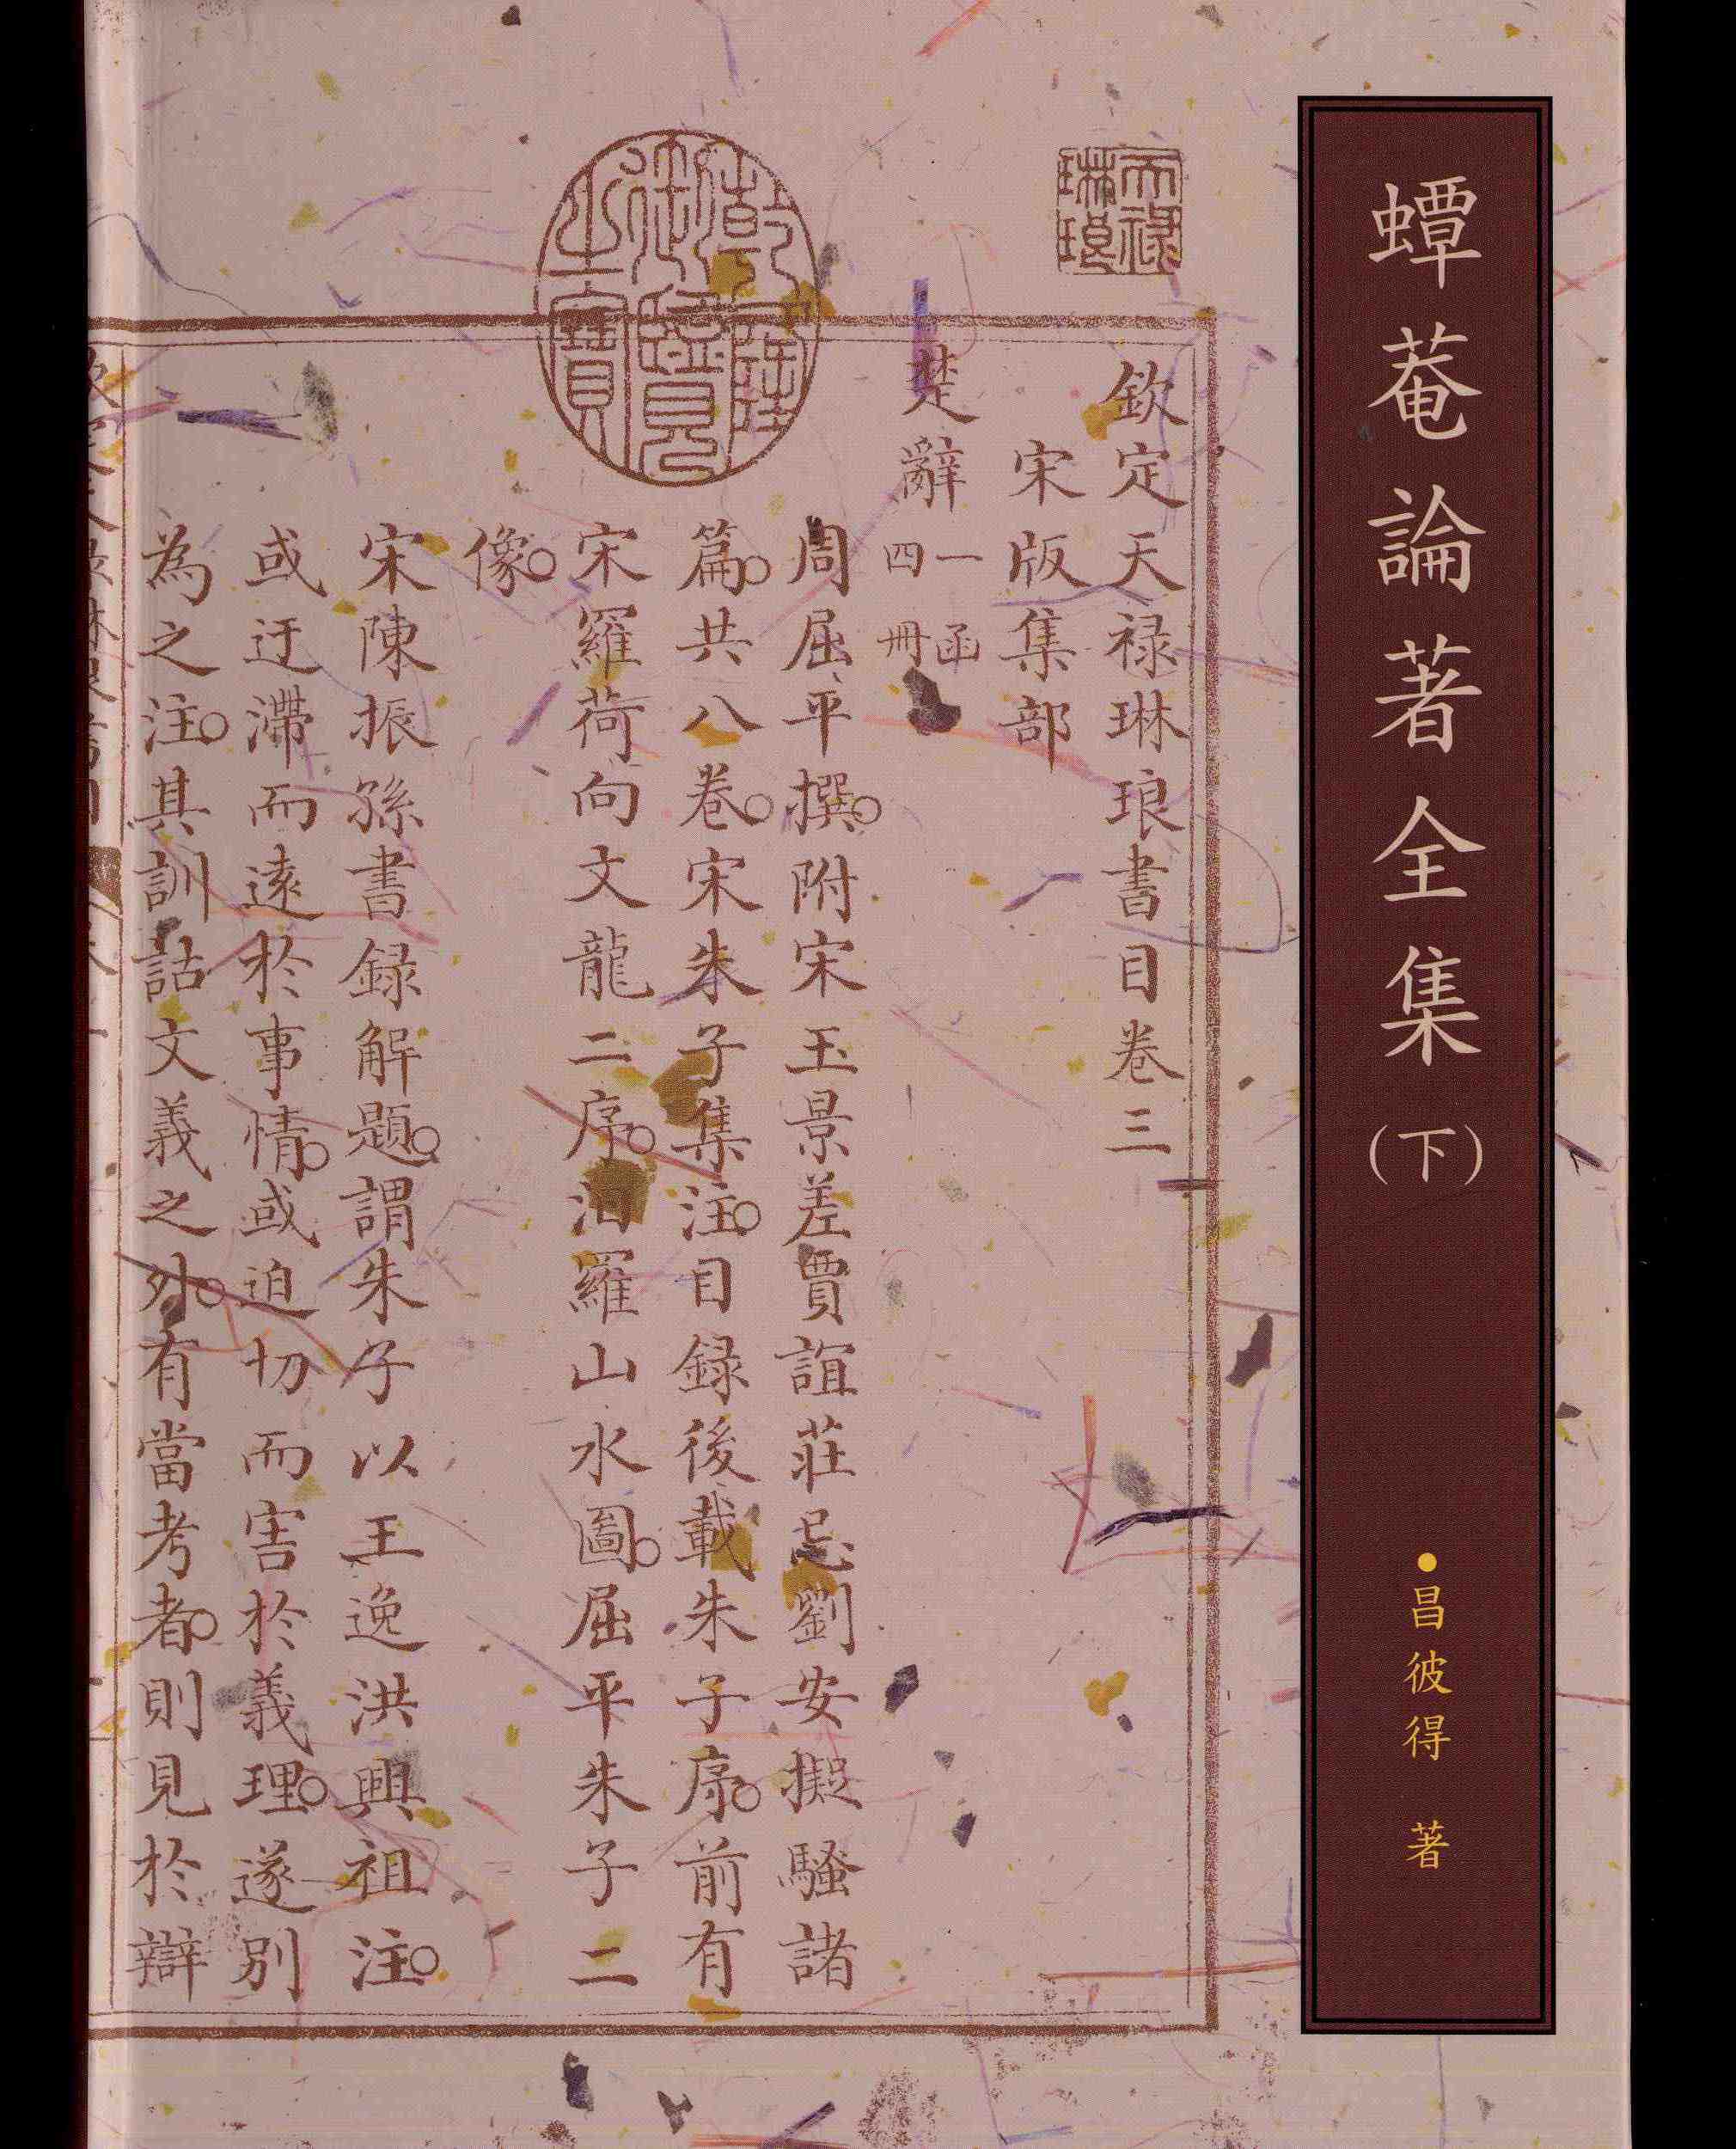 蟫菴論著全集(下)
•昌彼得 著
天祿琳琅
乾隆御覽之寶
欽定天禄琳琅書目卷三
宋版集部
楚辭
一函
四冊
周屈平撰○附宋玉景差賈誼莊忌劉安擬騷諸
篇○共八卷○宋朱子集注○目録後載朱子序○前有
宋羅荷向文龍二序○汨羅山水圖○屈平朱子二
像○
宋陳振孫書録解題○謂朱子以王逸洪興祖注○
或迂滯而遠於事情○或迫切而害於義理○遂別
為之注○其訓詁文義之外○有當考者○則見於辯